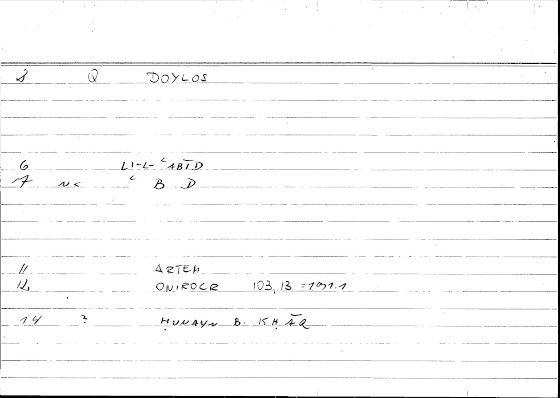 8 Q DOYLOS
6 LI-L-ʿABĪD
7 NC ʿ B D
11 ARTEM
12 ONIROCR 103,13 =191.1
14 ? ḤUNAYN B. ISḤĀQ